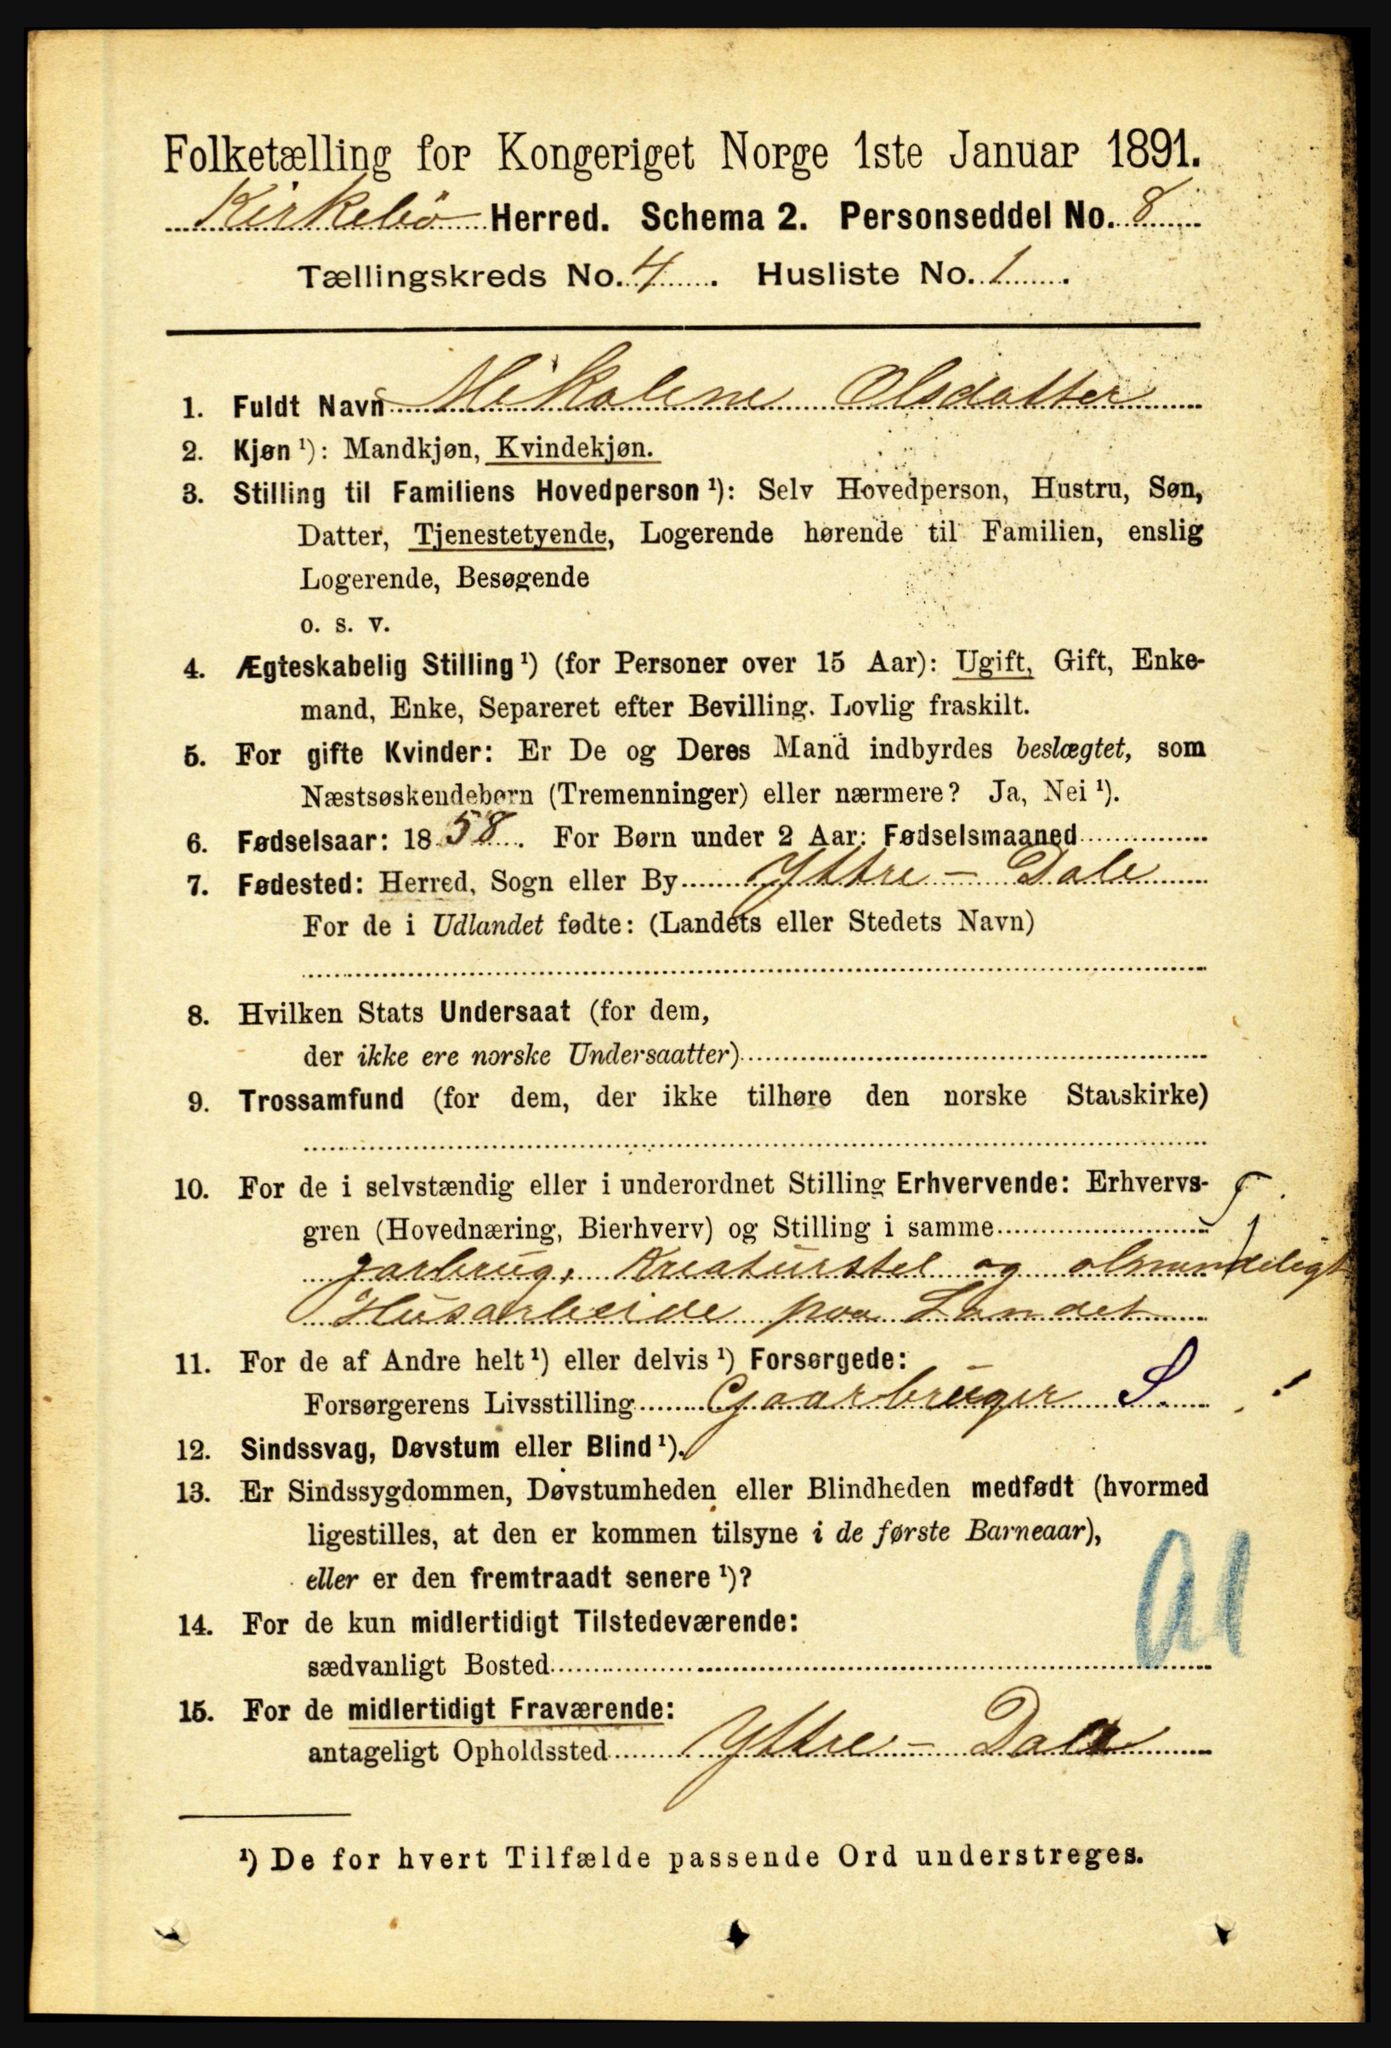 Folketælling for Kongeriget Norge 1ste Januar 1891.
Kirkebø Herred. Schema 2. Personseddel No. 8
Tællingskreds No. 4. Husliste No. 1.
1. Fuldt Navn Mikoline Olsdatter
2. Kjøn ¹): Mandkjøn, Kvindekjøn.
3. Stilling til Familiens Hovedperson ¹): Selv Hovedperson, Hustru, Søn,
Datter, Tjenestetyende, Logerende hørende til Familien, enslig
Logerende, Besøgende
o. s. v.
4. Ægteskabelig Stilling ¹) (for Personer over 15 Aar): Ugift, Gift, Enke-
mand, Enke, Separeret efter Bevilling. Lovlig fraskilt.
5. For gifte Kvinder: Er De og Deres Mand indbyrdes beslægtet, som
Næstsøskendebørn (Tremenninger) eller nærmere? Ja, Nei ¹).
6. Fødselsaar: 1858. For Børn under 2 Aar: Fødselsmaaned
7. Fødested: Herred, Sogn eller By Yttre - Dale
For de i Udlandet fødte: (Landets eller Stedets Navn)
8. Hvilken Stats Undersaat (for dem,
der ikke ere norske Undersaatter)
9. Trossamfund (for dem, der ikke tilhøre den norske Statskirke)
10. For de i selvstændig eller i underordnet Stilling Erhvervende: Erhvervs-
gren (Hovednæring, Bierhverv) og Stilling i samme
Jorbrug, Kreaturstel og almindeligt
Husarbeide paa Landet
11. For de af Andre helt ¹) eller delvis ¹) Forsørgede:
Forsørgerens Livsstilling Gaarbruger S.
12. Sindssvag, Døvstum eller Blind ¹).
13. Er Sindssygdommen, Døvstumheden eller Blindheden medfødt (hvormed
ligestilles, at den er kommen tilsyne i de første Barneaar),
eller er den fremtraadt senere ¹)?
14. For de kun midlertidigt Tilstedeværende:
sædvanligt Bosted
15. For de midlertidigt Fraværende:
antageligt Opholdssted Yttre - Dale
¹) De for hvert Tilfælde passende Ord understreges.